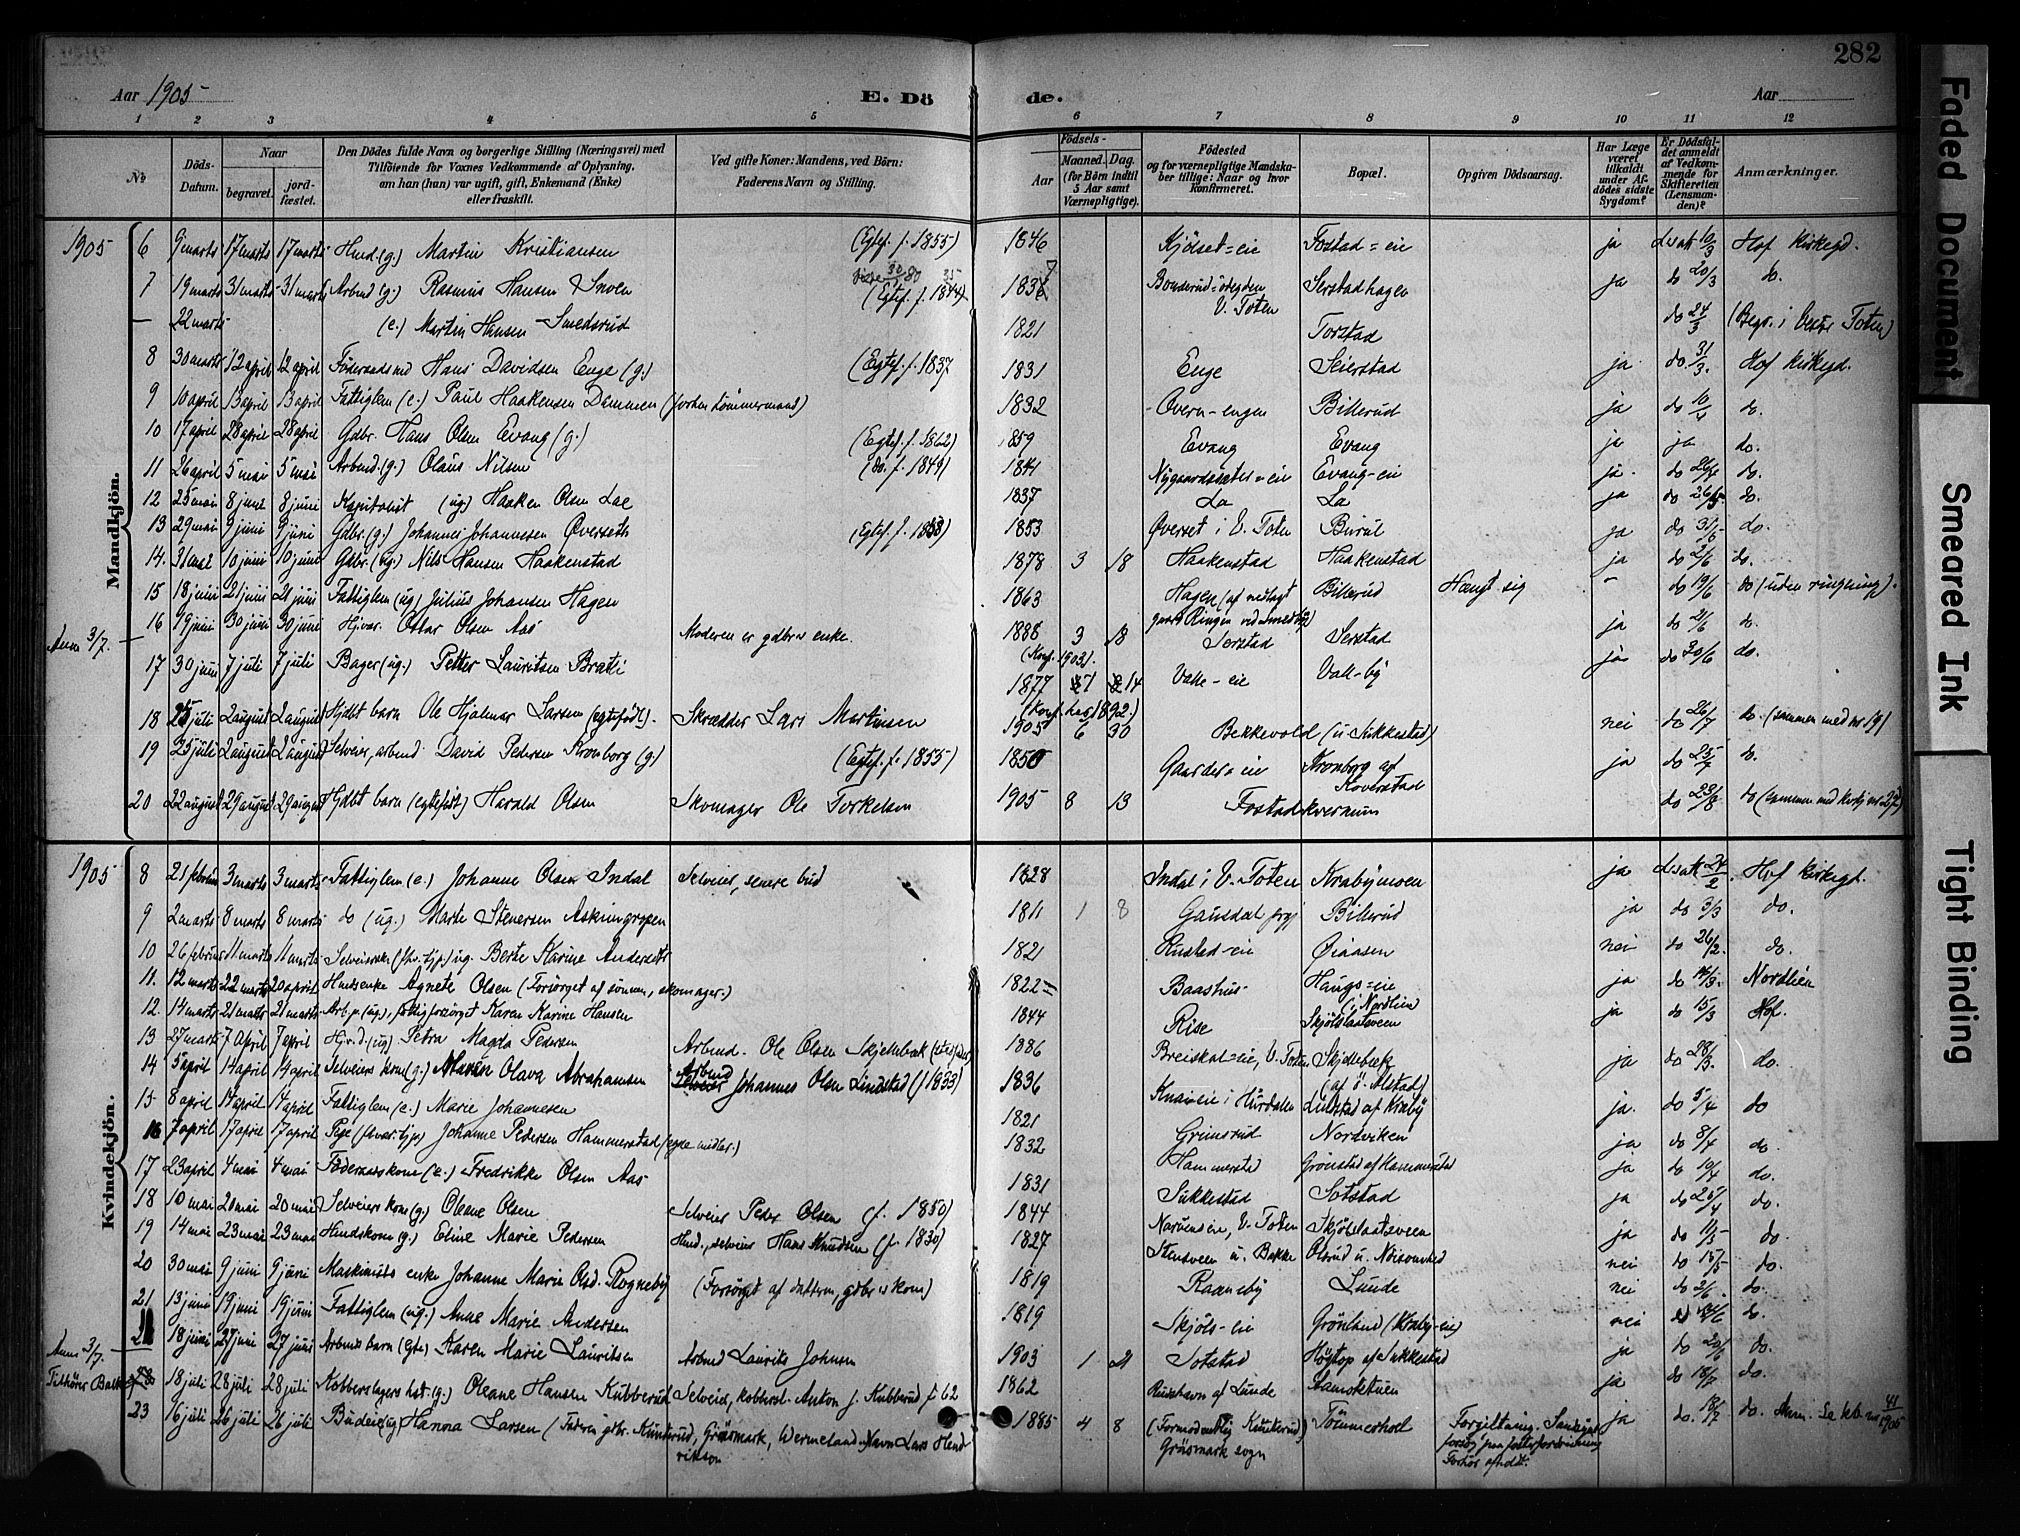 282
Aar 1905
E. Dö de.
Aar
1 2 3 4 5 6 7 8 9 10 11 12
No
Döds-Datum.
Naar begravet. jord-fæstet.
Den Dödes fulde Navn og borgerlige Stilling (Næringsvei) med Tilföiende for Voxnes Vedkommende af Oplysning, om han (hun) var ugift, gift, Enkemand (Enke) eller fraskilt.
Ved gifte Koner: Mandens, ved Börn: Faderens Navn og Stilling.
Födsels-
Aar
Maaned. Dag.
(for Börn indtil 5 Aar samt Værnepligtige).
Födested og for værnepligtige Mandskaber tillige: Naar og hvor konfirmeret.
Bopæl.
Opgiven Dödsaarsag.
Har Læge været tilkaldt under Afdödes sidste Sygdom?
Er Dödsfaldet anmeldt af Vedkommende for Skifteretten (Lensmanden)?
Anmærkninger.
Mandkjön.
1905 6 9 marts 17 marts 17 marts Husd. (g.) Martin Kristiansen (Egtef. f. 1855) 1846 Kjölset=eie Fostad=eie ja 10/3 Hof kirkegd.
7 19 marts 31 marts 31 marts Arbmd (g.) Rasmus Hansen (Egtef. f. 1844) V. Toten ja do 20/3 do.
22 marts (e.) Martin Hansen Smedsrud 1821 Torstad do 24/3 (Begr. i Toten)
8 30 marts 12 april 12 april Föderaadsmd Hans Davidsen Enge (g.) (Egtef. f. 1837 1831 Enge Seierstad ja do 31/3 Hof kirkegd.
9 10 april 13 april 13 april Fattiglem (e.) Paul Haakensen Dammen (forhen tömmermand) 1832 Overn-engen Billerud ja do 10/4 do.
10 17 april 28 april 28 april Gdbr. Hans Olsen Evang (g.) (Egtef. f. 1862) 1859 Evang Evang ja ja do.
11 26 april 5 mai 5 mai Arbmd. (g.) Olaus Nilsen (do. f. 1849) 1841 Evang-eie ja do do.
12 25 mai 8 juni 8 juni Kapitalist (ug) Haaken Olsen Lae 1837 La La ja do 26/5 do.
13 29 mai 9 juni 9 juni Gdbr. (g.) Johannes Johannessen Øverseth (Egtef. f. ) 1853 Øverset i V. Toten Burul ja do do.
14. 31 mai 10 juni 10 juni Gdbr. (ug.) Nils Hansen Haakenstad 1878 3 18 Haakenstad Haakenstad ja do 2/6 do.
15 18 juni 21 juni 21 juni Fattiglem (ug) Julius Johansen Hagen 1863 Hagen (af nedlagt Billerud Hængt sig - do 19/6 do (uden ringning).
gaard Ringen ved
Anm 3/7.
16 19 juni 30 juni 30 juni Oskar Olsen Aas Moderen er gdbrs enke. 1888 3 18 Serstad Serstad ja do 21/6 do.
(Konf. 1903).
17 30 juni 7 juli 7 juli Bager (ug.) Petter Lauritsen Brati 1877 14 Valle-eie Valle-by ja do 30/6 do.
18 25 juli 2 august 2 august Hjdbt barn Ole Hjalmar Larsen (egtefödt). Skrædder Lars Martinsen 1905 6 30 Bekkevold (u Sukkestad) nei do 26/7 do. (sammen med nr 19)
19 25 juli 2 august 2 august Selveier, arbmd David Pedersen Kronborg (g.) (Egtef. f. 1855) 1850 Gaarder=eie Kronborg af Hoverstad ja do 25/7 do.
20 22 august 29 august 29 august Hjdbt barn (egtefödt) Harald Olsen Skomager Ole Torkelsen 1905 8 13 Fostadkvernum do 23/8
Kvindekjön.
1905 8 21 februar 3 marts 3 marts Fattiglem (e.) Johanne Olsen Indal Selveier, senere bud 1828 Indal i V. Toten Krabymoen ja 24/2 Hof kirkegd.
9 2 marts 8 marts 8 marts do (ug.) Marte Stenersen Askimgrypen 1811 1 8 Gausdal prgj Billerud ja do 3/3 do.
10 26 februar 11 marts 11 marts ug. Berte Karine Anderseth 1821 Rustad-eie Øiaasen nei do 26/2. do.
11. 12 marts 22 marts 20 april Husdsenke Agnete Olsen (Forsörget af sönnen, skomager.) 1822 Baashus- Haugs=eie (i Nordlien) ja do Nordlien
12. 14 marts 21 marts 21 marts fattigforsörget Karen Karine Hansen 1844 Rise Skjölslaatsveen ja do 15/3 Hof.
13 27 marts 7 april 7 april (ug) Petra Magda Pedersen Arbmd. Ole Olsen Skjellebæk 1886 V. Toten Skjellebæk (af ö. Alstad) ja do 28/3. do.
14 5 april 14 april 14 april Selveiers kone (g.) Maren Olava Abrahamsen Arbmd Johannes Olsen Lindstad (f 1833) 1836 i Hurdalen Lindstad af Kraby ja. do 5/4 do
15 8 april 14 april 14 april Fattiglem (e.) Marie Johannesen 1821 Grimsrud Nordviken ja do 8/4 do.
16 7 april 17 april 17 april Pige Johanne Pedersen Hammerstad (egne midler.) 1832 Hammerstad Grönstad af Hammerstad ja do 10/4 do.
17 23 april 4 mai 4 mai Föderaadskone (e.) Fredrikke Olsen Aas 1831 Sukkestad Sotstad ja do 25/4 do.
18 10 mai 20 mai 20 mai Selveiers kone (g.) Oleane Olsen Selveier Peder Olsen (f. 1850) 1844 V. Toten Skjölslaatsveen ja do 11/5 do.
19 14 mai 23 mai 23 mai Husdskone (g.) Eline Marie Pedersen Husd., selveier Hans Knudsen (f. 1830) 1827 Stensveen u. Bakke Olsrud u. nei do 15/5 do.
20 30 mai 9 juni 9 juni Maskinists enke Johanne Marie Olsd. Rogneby (Forsörget af datteren, gdbrs kone) 1819 Raaneby Lunde nei do 2/6. do.
21 13 juni 19 juni 19 juni Fattiglem (ug.) Anne Marie Andersen 1819 Skjöls-eie Grönlund (Kraby-eie) nei do do.
Anm 3/7.
18 juni 27 juni 27 juni Arbmds barn (egte) Karen Marie Lauritsen Arbmd Laurits Johnsen 1903 1 21 Sotstad Högtop af Sukkestad ja do 20/6 do.
Tilhörer Balke
18 juli 28 juli 28 juli Kobberslagers hst. (g.) Oleane Hansen Kubberud Selveier, kobbersl. Anton J. Kubberud f. 62 1862 af Lunde Stamoktuen ja do 18/7 do.
23 16 juli 26 juli 26 juli Budeie (ug) Hanna Larsen (Faderen gdbr. Gräsmark, Wermeland. Navn Lars Hendrikson 1885 4 8 (Formodentlig Gräsmark sogn Tömmerhol Forgiftning. ja do. 18/7 do. Anm. Se kb. nr 41/1905
Faded Document
Smeared Ink
Tight Binding